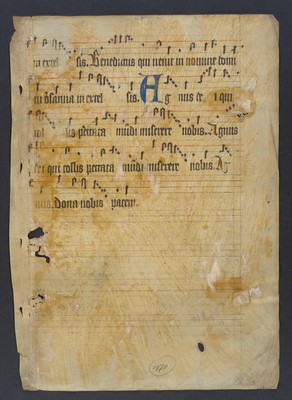 in excel sis. Benedictus qui uenit in nomine domi
ni osanna in excel sis. Ag nus de i qui
tol lis peccata mudi miserere nobis. Agnus
dei qui tollis peccata mudi miserere nobis. Ag
nus. Dona nobis pacem.